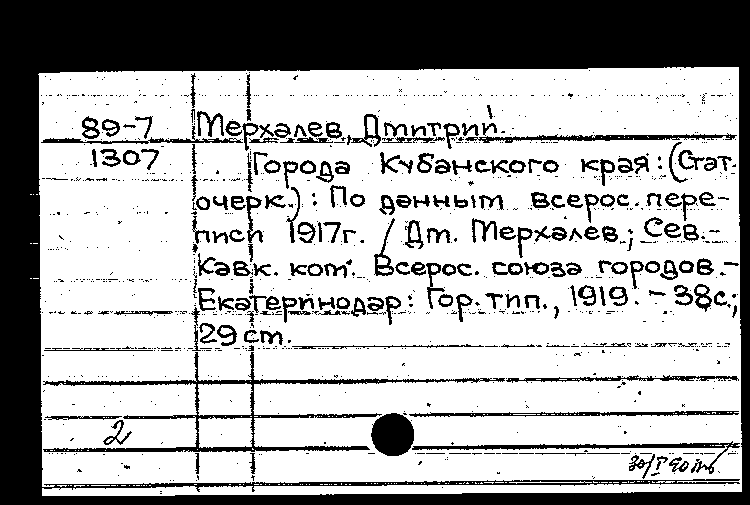 89-7 Мерхалев, Дмитрий.
1307 Города Кубанского края: (Стат.
очерк.) : По данным всерос. пере-
писи 1917г. / Дм. Мерхалев; Сев.-
Кавк. ком. Всерос. союза городов.-
Екатеринодар: Гор. тип., 1919. - 38с.;
29 см.
2